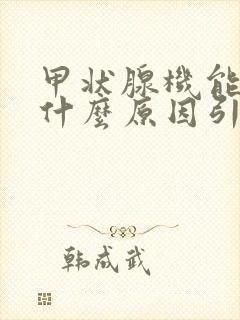 甲状腺機能
什麼原因引
韩成武